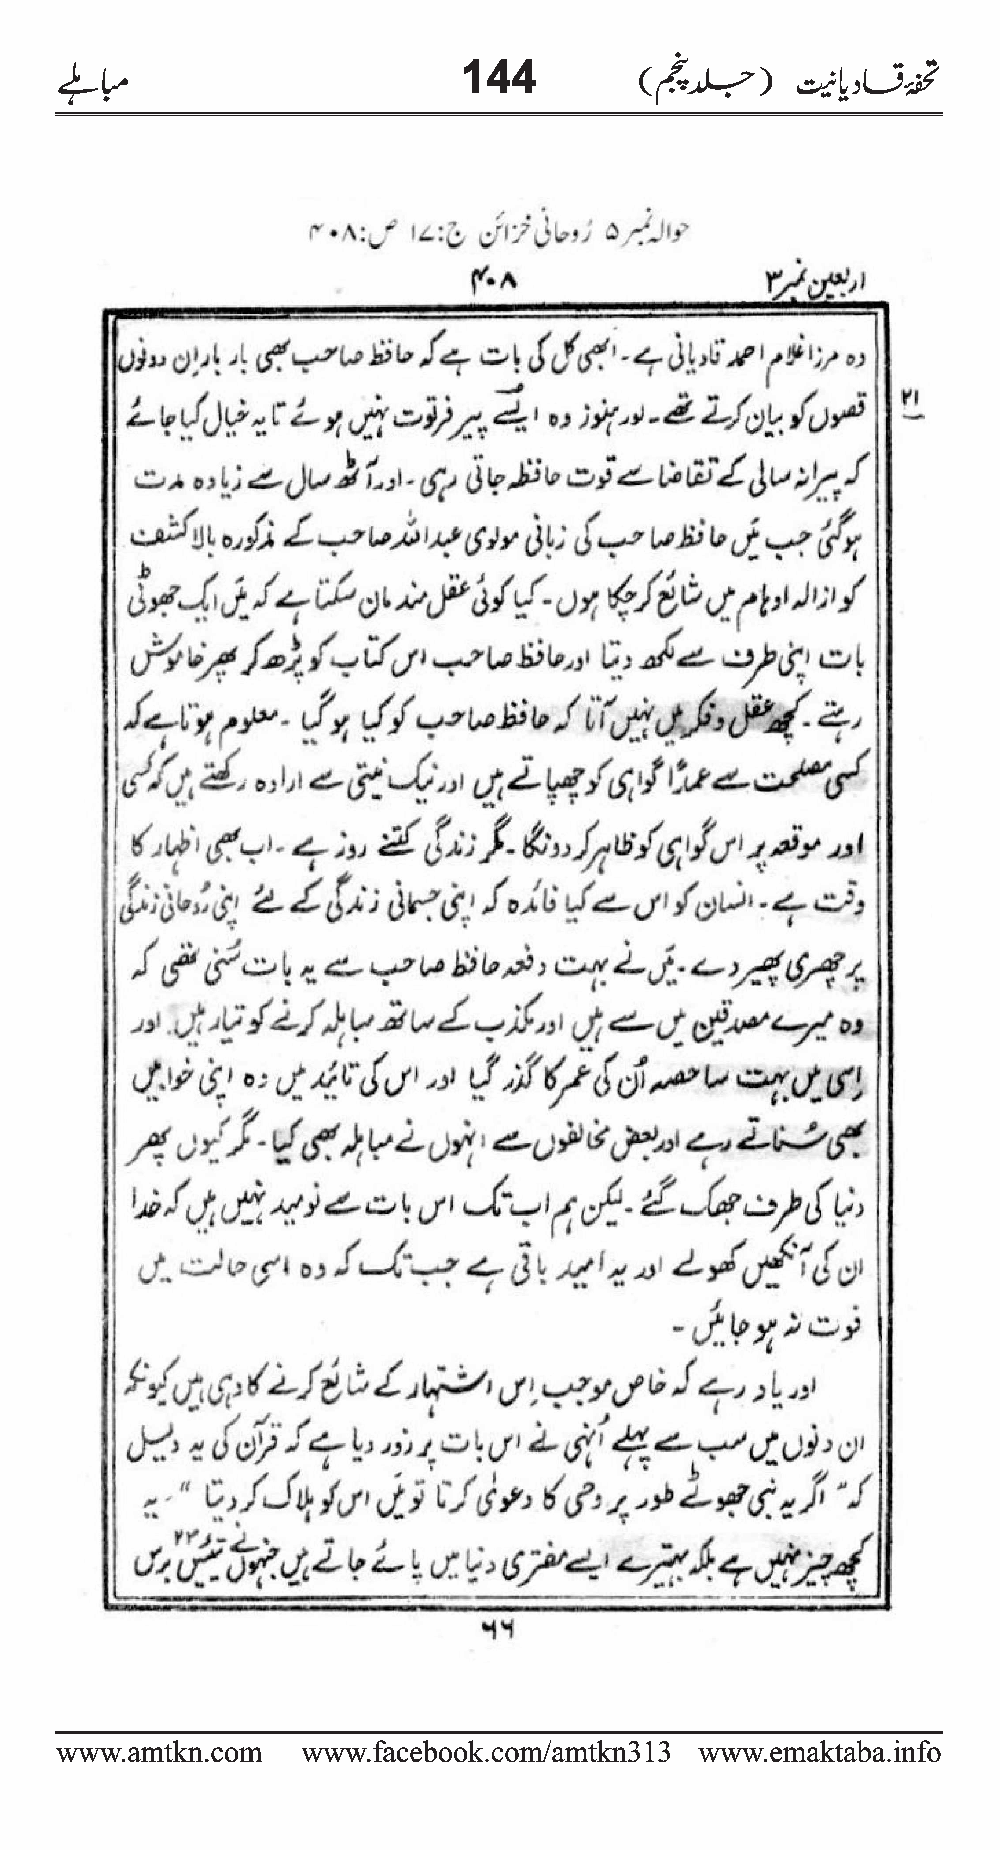 تحفۂ قادیانیت (جلد پنجم) 144 مباہلے
حوالہ نمبر ۵ رُوحانی خزائن ج:۱۷ ص:۴۰۸
اربعین نمبر ۳ ۴۰۸
وہ مرزا غلام احمد قادیانی ہے۔ ابھی کل کی بات ہے کہ حافظ صاحب بھی بار بار اِن دونوں
۲۱
قصوں کو بیان کرتے تھے۔ اور ہنوز وہ ایسے پیر فرتوت نہیں ہوئے تا یہ خیال کیا جائے
کہ پیرانہ سالی کے تقاضا سے قوت حافظہ جاتی رہی۔ اور آٹھ سال سے زیادہ مدت
ہوگئی جب میں حافظ صاحب کی زبانی مولوی عبداللہ صاحب کے مذکورہ بالا کشف
کو ازالہ اوہام میں شائع کر چکا ہوں۔ کیا کوئی عقلمند مان سکتا ہے کہ میں ایک جھوٹی
بات اپنی طرف سے لکھ دیتا اور حافظ صاحب اس کتاب کو پڑھ کر پھر خاموش
رہتے۔ کچھ عقل و فکر میں نہیں آتا کہ حافظ صاحب کو کیا ہو گیا۔ معلوم ہوتا ہے کہ
کسی مصلحت سے عمدًا گواہی کو چھپاتے ہیں اور نیک نیتی سے ارادہ رکھتے ہیں کہ کسی
اور موقعہ پر اس گواہی کو ظاہر کر دونگا۔ مگر زندگی کتنے روز ہے۔ اب بھی اظہار کا
وقت ہے۔ انسان کو اس سے کیا فائدہ کہ اپنی جسمانی زندگی کے لئے اپنی رُوحانی زندگی
پر چھری پھیر دے۔ میں نے بہت دفعہ حافظ صاحب سے یہ بات سُنی تھی کہ
وہ میرے مصدقین میں سے ہیں اور مکذب کے ساتھ مباہلہ کرنے کو تیار ہیں۔ اور
اِسی میں بہت سا حصہ اُن کی عمر کا گذر گیا اور اس کی تائید میں وہ اپنی خوابیں
بھی سُناتے رہے اور بعض مخالفوں سے انہوں نے مباہلہ بھی کیا۔ مگر کیوں پھر
دنیا کی طرف جھک گئے۔ لیکن ہم اب تک اس بات سے نومید نہیں ہیں کہ خدا
ان کی آنکھیں کھولے اور یہ امید باقی ہے جب تک کہ وہ اسی حالت میں
فوت نہ ہو جائیں۔
اور یاد رہے کہ خاص موجب اِس اشتہار کے شائع کرنے کا وہی ہیں کیونکہ
ان دنوں میں سب سے پہلے اُنہی نے اس بات پر زور دیا ہے کہ قرآن کی یہ دلیل
کہ "اگر یہ نبی جھوٹے طور پر وحی کا دعویٰ کرتا تو میں اس کو ہلاک کر دیتا"۔ یہ
کچھ چیز نہیں ہے بلکہ بہتیرے ایسے مفتری دنیا میں پائے جاتے ہیں جنہوں نے تیئیس۲۳ برس
۶۶
www.amtkn.com www.facebook.com/amtkn313 www.emaktaba.info